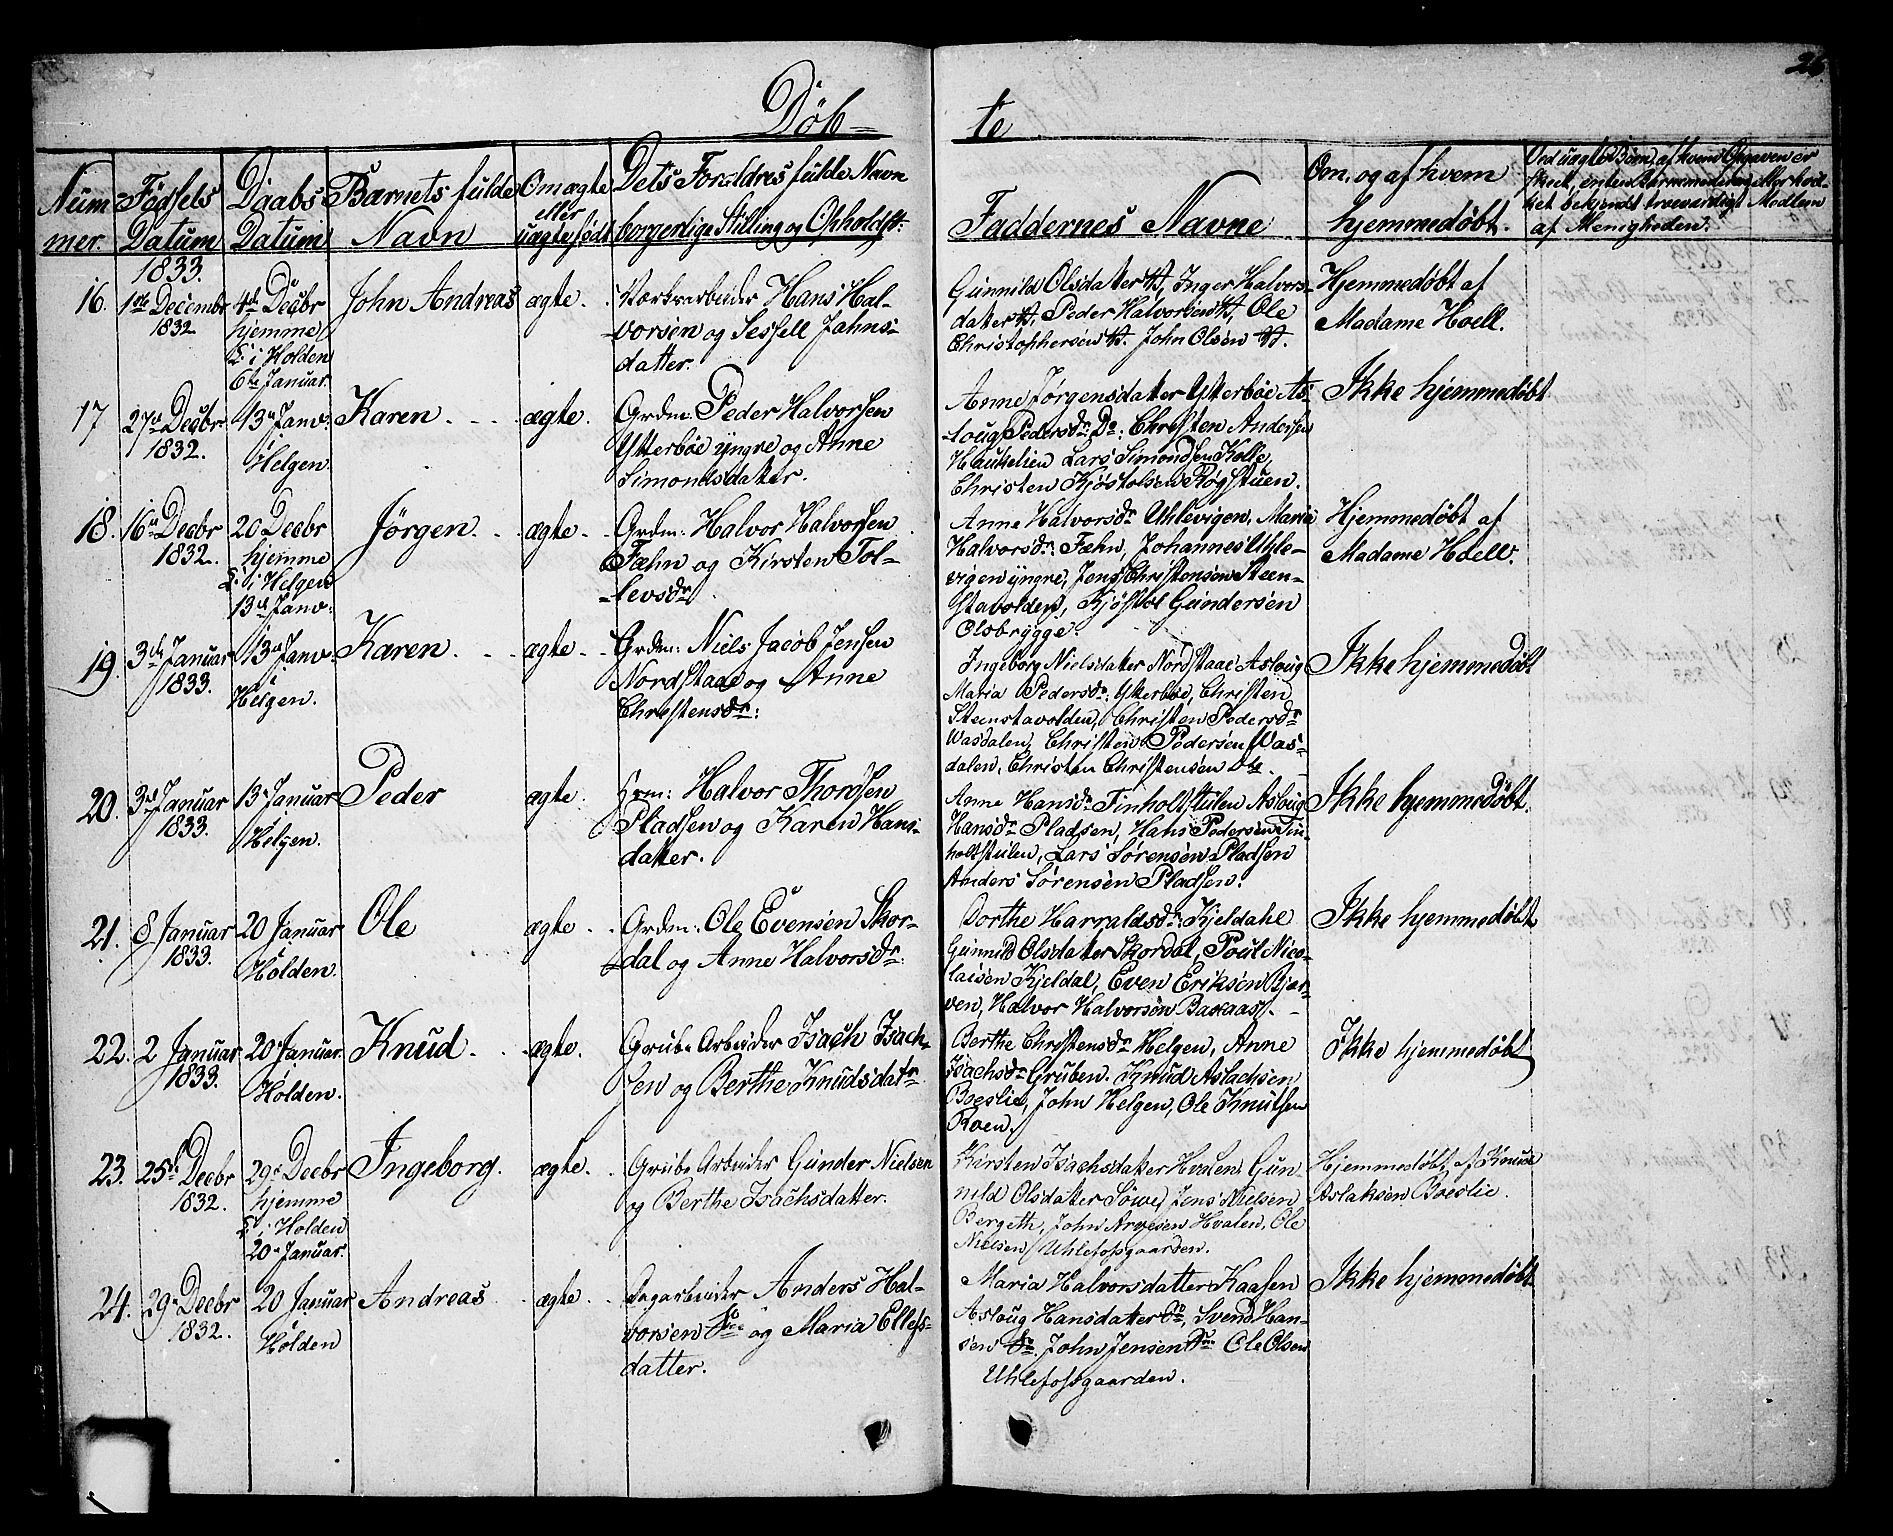 26
Döb=
te
Num
mer.
Födsels
Datum
Daabs
Datum
Barnets fulde
Navn
Om ægte
eller
uægte födt
Dets Forældres fulde Navn
borgerlige Stilling og Opholdst:
Faddernes Navne
Om, og af hvem
hjemmedöbt.
Ved uægte Börn, af hvem Opgaven er
skeet, enten Barnemoderen eller hod-
ket bekjendt troeværdigt Medlem
af Menigheden.
1833.
16.
1ste Decembr
1832
4de Decbr
hjemme
i Holden
6te Januar.
John Andreas
ægte.
Værksarbeider Hans Hal-
vorsen og Sessell Jahns-
datter.
Gunnild Olsdatter, Inger Halvors-
datter, Peder Halvorsen, Ole
Christophersen. John Olsen
Hjemmedöbt af
Madame Hoell.
17
27de Decbr
1832.
13de Janv:
i
Helgen.
Karen
ægte.
Grdm: Peder Halvorsen
Ytterböe yngre og Anne
Simonsdatter.
Anne Jörgensdatter Ytterböe As-
loug Pedersdr Do: Christen Andersen
Haukelien Lars Simonsen Kolle,
Christen Kjöstolsen Rögstuen.
Ikke hjemmedöbt
18.
16de Decbr
1832.
20 Decbr
hjemme
i Helgen
13de Janv:
Jörgen
ægte
Grdm: Halvor Halvorsen
Fæhn og Kirsten Tol-
levsdr
Anne Halvorsdr Uhlevigen, Marie
Halvorsdr: Fæhn, Johannes Uhle-
vigen yngre, Jens Christensen Steen-
stavolden, Kjöstol Gundersen
Olsbrygge.
Hjemmedöbt af
Madame Hoell.
19.
3de Januar
1833.
13de Janv
i
Helgen.
Karen
ægte
Grdm: Niels Jacob Jensen
Nordstaae og Anne
Christensdr:
Ingeborg Nielsdatter Nordstaae Asloug
Maria Pedersdr: Ytterböe, Christen
Steenstavolden, Christen Pedersdr
Wasdalen, Christen Pedersen Was-
dalen, Christen Christensen Do.
Ikke hjemmedöbt
20.
3de Januar
1833.
13de Januar
i
Helgen.
Peder
ægte
Hsm: Halvor Thordsen
Pladsen og Karen Hans-
datter.
Anne Hansdr Finholtstulen Asloug
Hansdr Pladsen, Hans Pedersen Fin-
holtstulen, Lars Sörensen Pladsen
Anders Sörensen Pladsen.
Ikke hjemmedöbt.
21.
8 Januar
1833.
20 Januar
i
Holden.
Ole
ægte
Grdm: Ole Evensen Skor-
dal og Anne Halvorsdr:
Dorthe Harraldsdr: Kjeldahl
Gunnild Olsdatter Skordal, Poul Nico-
laisen Kjeldal, Even Eriksen Bjer-
ven, Halvor Halvorsen Bakaas.
Ikke hjemmedöbt
22.
2 Januar
1833.
20 Januar
i
Holden.
Knud
ægte.
Grube Arbeider Isach Isach-
sen og Berthe Knudsdatr
Berthe Christensdr Helgen, Anne
Isachsdr Gruben. Knud Aslachsen
Boeslie, John Helgen, Ole Knutsen
Roen.
Ikke hjemmedöbt
23.
25de Decbr
1832.
29de Decbr
hjemme
i Holden
20de Januar
Ingeborg.
ægte.
Grube Arbeider Gunder Nielsen
og Berthe Isachsdatter.
Kirsten Isachsdatter Hvalen. Gun-
nild Olsdatter Söwe, Jens Nielsen
Bergeth, John Arvesen Hvalen, Ole
Nielsen Uhlefossgaarden.
Hjemmedöbt af Knud
Aslaksen Boeslie.
24.
29de Decbr
1832.
20 Januar
i
Holden
Andreas
ægte
Dagarbeider Anders Hal-
vorsen Söe og Maria Ellefs-
datter.
Maria Halvorsdatter Kaasen
Asloug Hansdatter Do, Svend Han-
sen Do. John Jensen Do Ole Olsen
Uhlefossgaarden.
Ikke hjemmedöbt